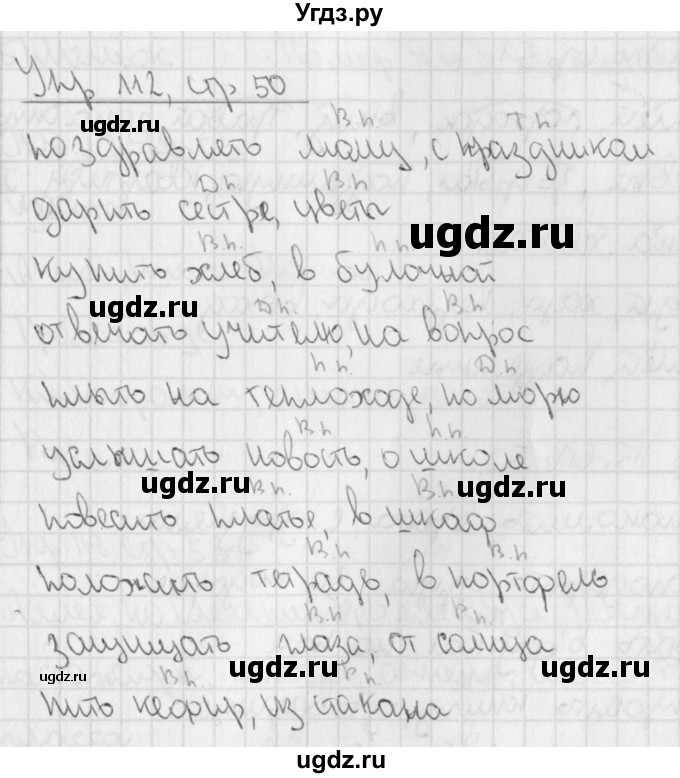 Угдз.ру
Упр 112, стр 50
ugdz.ru
В.п Т.п
поздравлять маму, с праздником
Д.п. В.п.
дарить сестре, цветы
ugdz.ru
В.п. п.п.
купить хлеб, в булочной
ugdz.ru
Д.п. В.п
отвечать учителю, на вопрос
п.п. Д.п
плыть на теплоходе, по морю
В.п п.п.
услышать новость, о школе
ugdz.ru ugdz.ru
В.п. В.п
повесить платье, в шкаф
В.п В.п.
положить тетрадь, в портфель
В.п Р.п.
защищать глаза, от солнца
ugdz.ru ugdz.ru ugdz.ru
В.п. Р.п.
пить кефир, из стакана
ugdz.ru